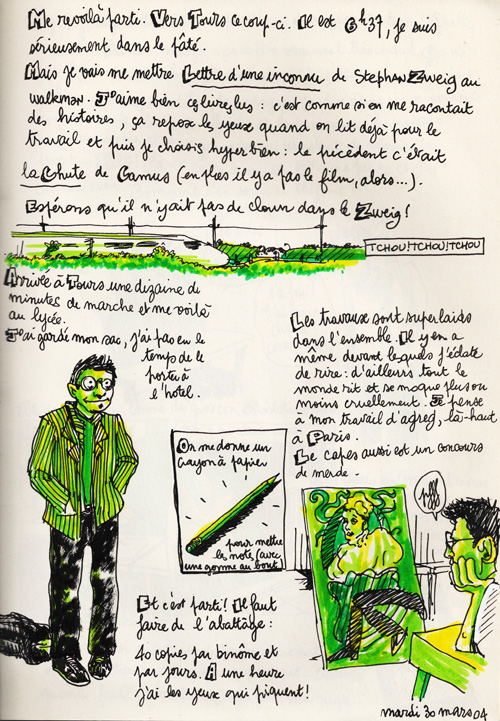 Me revoilà parti. Vers Tours ce coup-ci. Il est 6h37, je suis
sérieusement dans le pâté.
Mais je vais me mettre Lettre d'une inconnu de Stephan Zweig au
walkman. J'aime bien ces livres lus : c'est comme si on me racontait
des histoires, ça repose les yeux quand on lit déjà pour le
travail et puis je choisis hyper bien : le précédent c'était
la Chute de Camus (en plus il y a pas le film, alors...).
Espérons qu'il n'y ait pas de clown dans le Zweig!
TCHOU!TCHOU!TCHOU
Arrivée à Tours une dizaine de
minutes de marche et me voilà
au lycée.
J'ai gardé mon sac, j'ai pas eu le
temps de le
porter à
l'hotel.
Les travaux sont super laids
dans l'ensemble. Il y en a
même devant lesquels j'éclate
de rire : d'ailleurs tout le
monde rit et se moque plus ou
moins cruellement. Je pense
à mon travail d'agreg, là-haut
à Paris.
Le capes aussi est un concours
de merde.
On me donne un
crayon à papier
pour mettre
les notes (avec
une gomme au bout
pfff
Et c'est parti! Il faut
faire de l'abattage :
40 copies par binôme et
par jours. A une heure
j'ai les yeux qui piquent!
mardi 30 mars 04